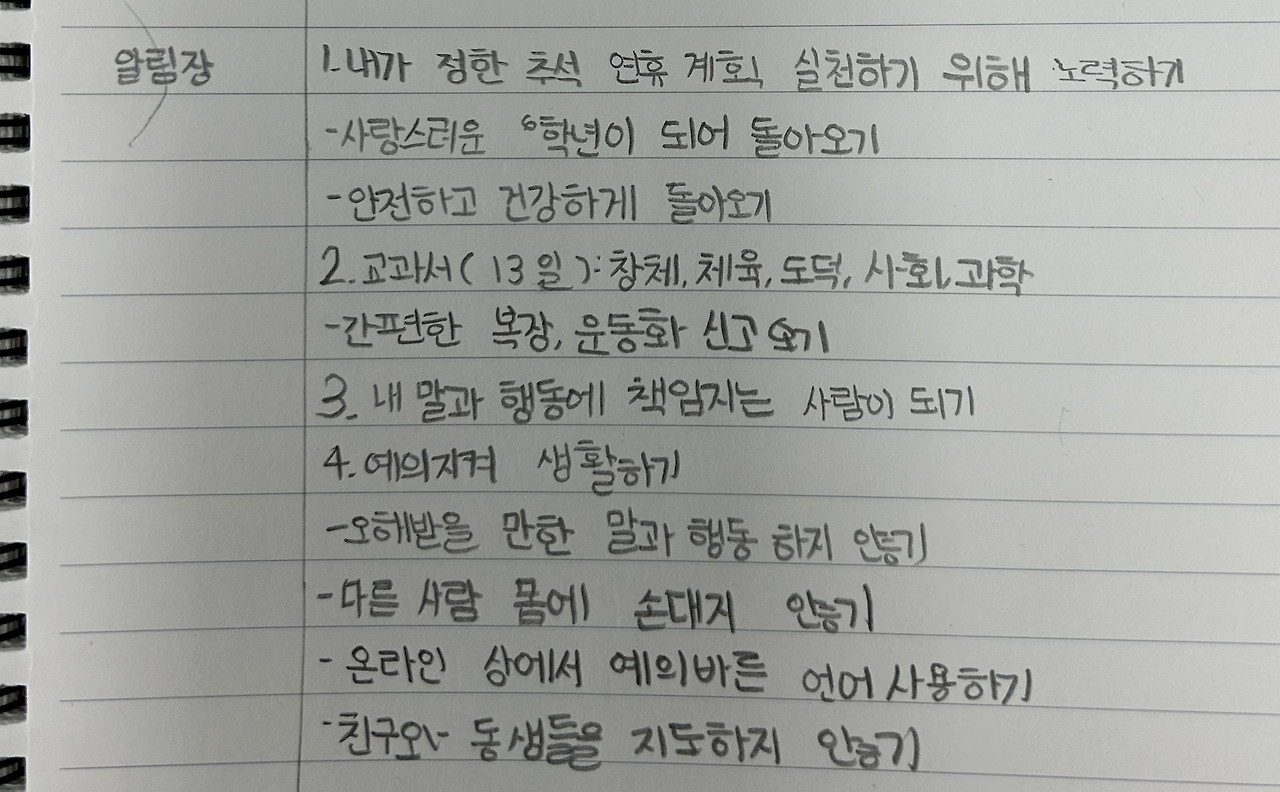 알림장
1. 내가 정한 추석 연휴 계획 실천하기 위해 노력하기
-사랑스러운 6학년이 되어 돌아오기
-안전하고 건강하게 돌아오기
2. 교과서(13일): 창체, 체육, 도덕, 사회, 과학
-간편한 복장, 운동화 신고 오기
3. 내 말과 행동에 책임지는 사람이 되기
4. 예의지켜 생활하기
-오해받을 만한 말과 행동 하지 않기
-다른 사람 몸에 손대지 않기
- 온라인 상에서 예의바른 언어 사용하기
-친구와 동생들을 지도하지 않기